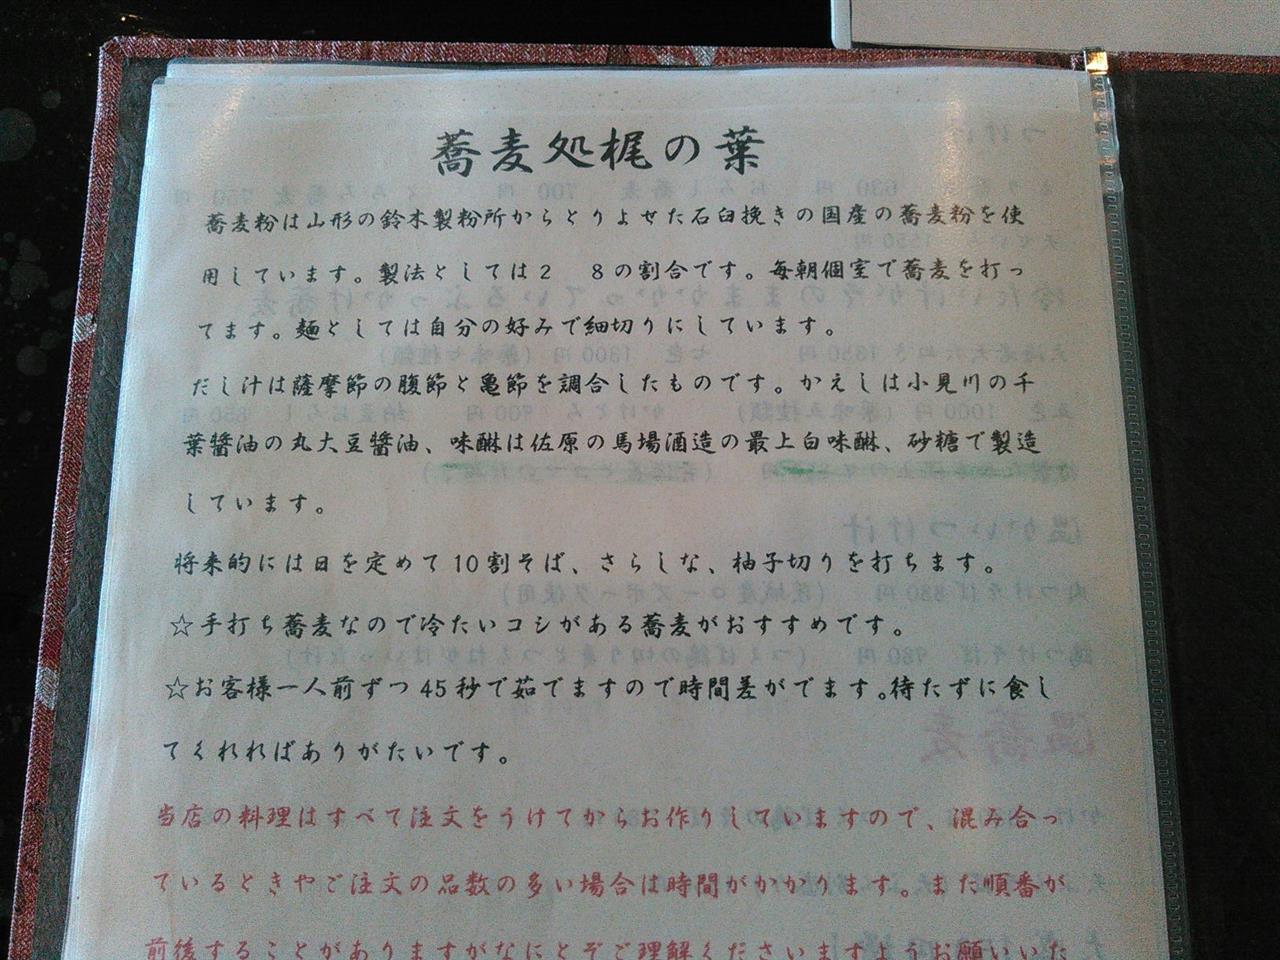 蕎麦処梶の葉
蕎麦粉は山形の鈴木製粉所からとりよせた石臼挽きの国産の蕎麦粉を使
用しています。製法としては２　８の割合です。毎朝個室で蕎麦を打っ
てます。麺としては自分の好みで細切りにしています。
だし汁は薩摩節の腹節と亀節を調合したものです。かえしは小見川の千
葉醤油の丸大豆醤油、味醂は佐原の馬場酒造の最上白味醂、砂糖で製造
しています。
将来的には日を定めて10割そば、さらしな、柚子切りを打ちます。
☆手打ち蕎麦なので冷たいコシがある蕎麦がおすすめです。
☆お客様一人前ずつ45秒で茹でますので時間差がでます。待たずに食し
てくれればありがたいです。
当店の料理はすべて注文をうけてからお作りしていますので、混み合っ
ているときやご注文の品数の多い場合は時間がかかります。また順番が
前後することがありますがなにとぞご理解くださいますようお願いいた